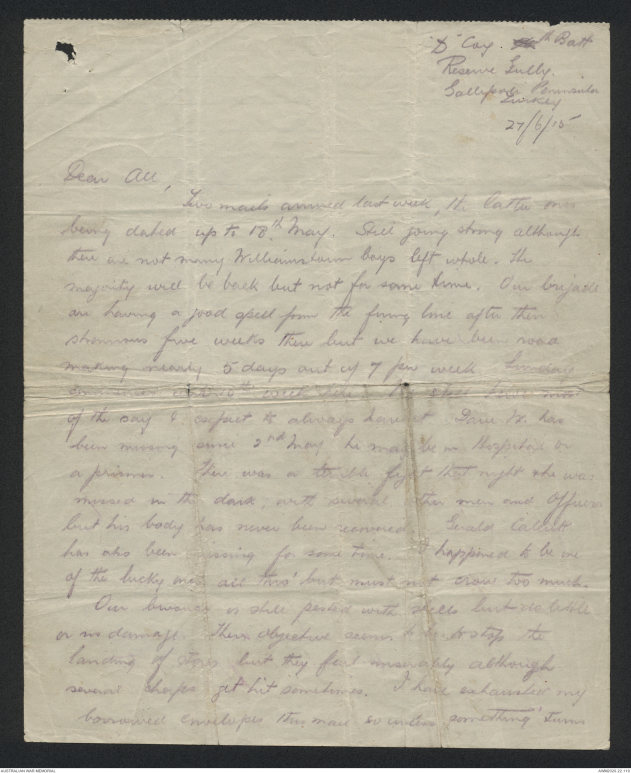 "D" Coy. th Batt
Reserve Gully.
Gallipoli Peninsula
Turkey
27/6/15
Dear All,
Two mails arrived last week, the latter one
being dated up to 18th May. Still going strong although
there are not many Williamstown boys left whole. The
majority will be back but not for some time. Our brigade
are having a good spell from the firing line after their
strenuous five weeks there but we have been road
making nearly 5 days out of 7 per week. Sunday
week
of the day & expect to always have it. Dave W. has
been missing since 2nd May he may be in Hospital or
a prisoner. There was a terrible fight that night & he was
missed in the dark, with several other men and Officers
but his body has never been recovered. Gerald Calcutt
has also been missing for some time. I happened to be one
of the lucky ones all thro' but must not crow too much.
Our bivouac is still pested with shells but do little
or no damage. Their objective seems to be to stop the
landing of stores but they fail miserably although
several chaps get hit sometimes. I have exhausted my
borrowed envelopes this mail so unless something turns
AUSTRALIAN WAR MEMORIAL